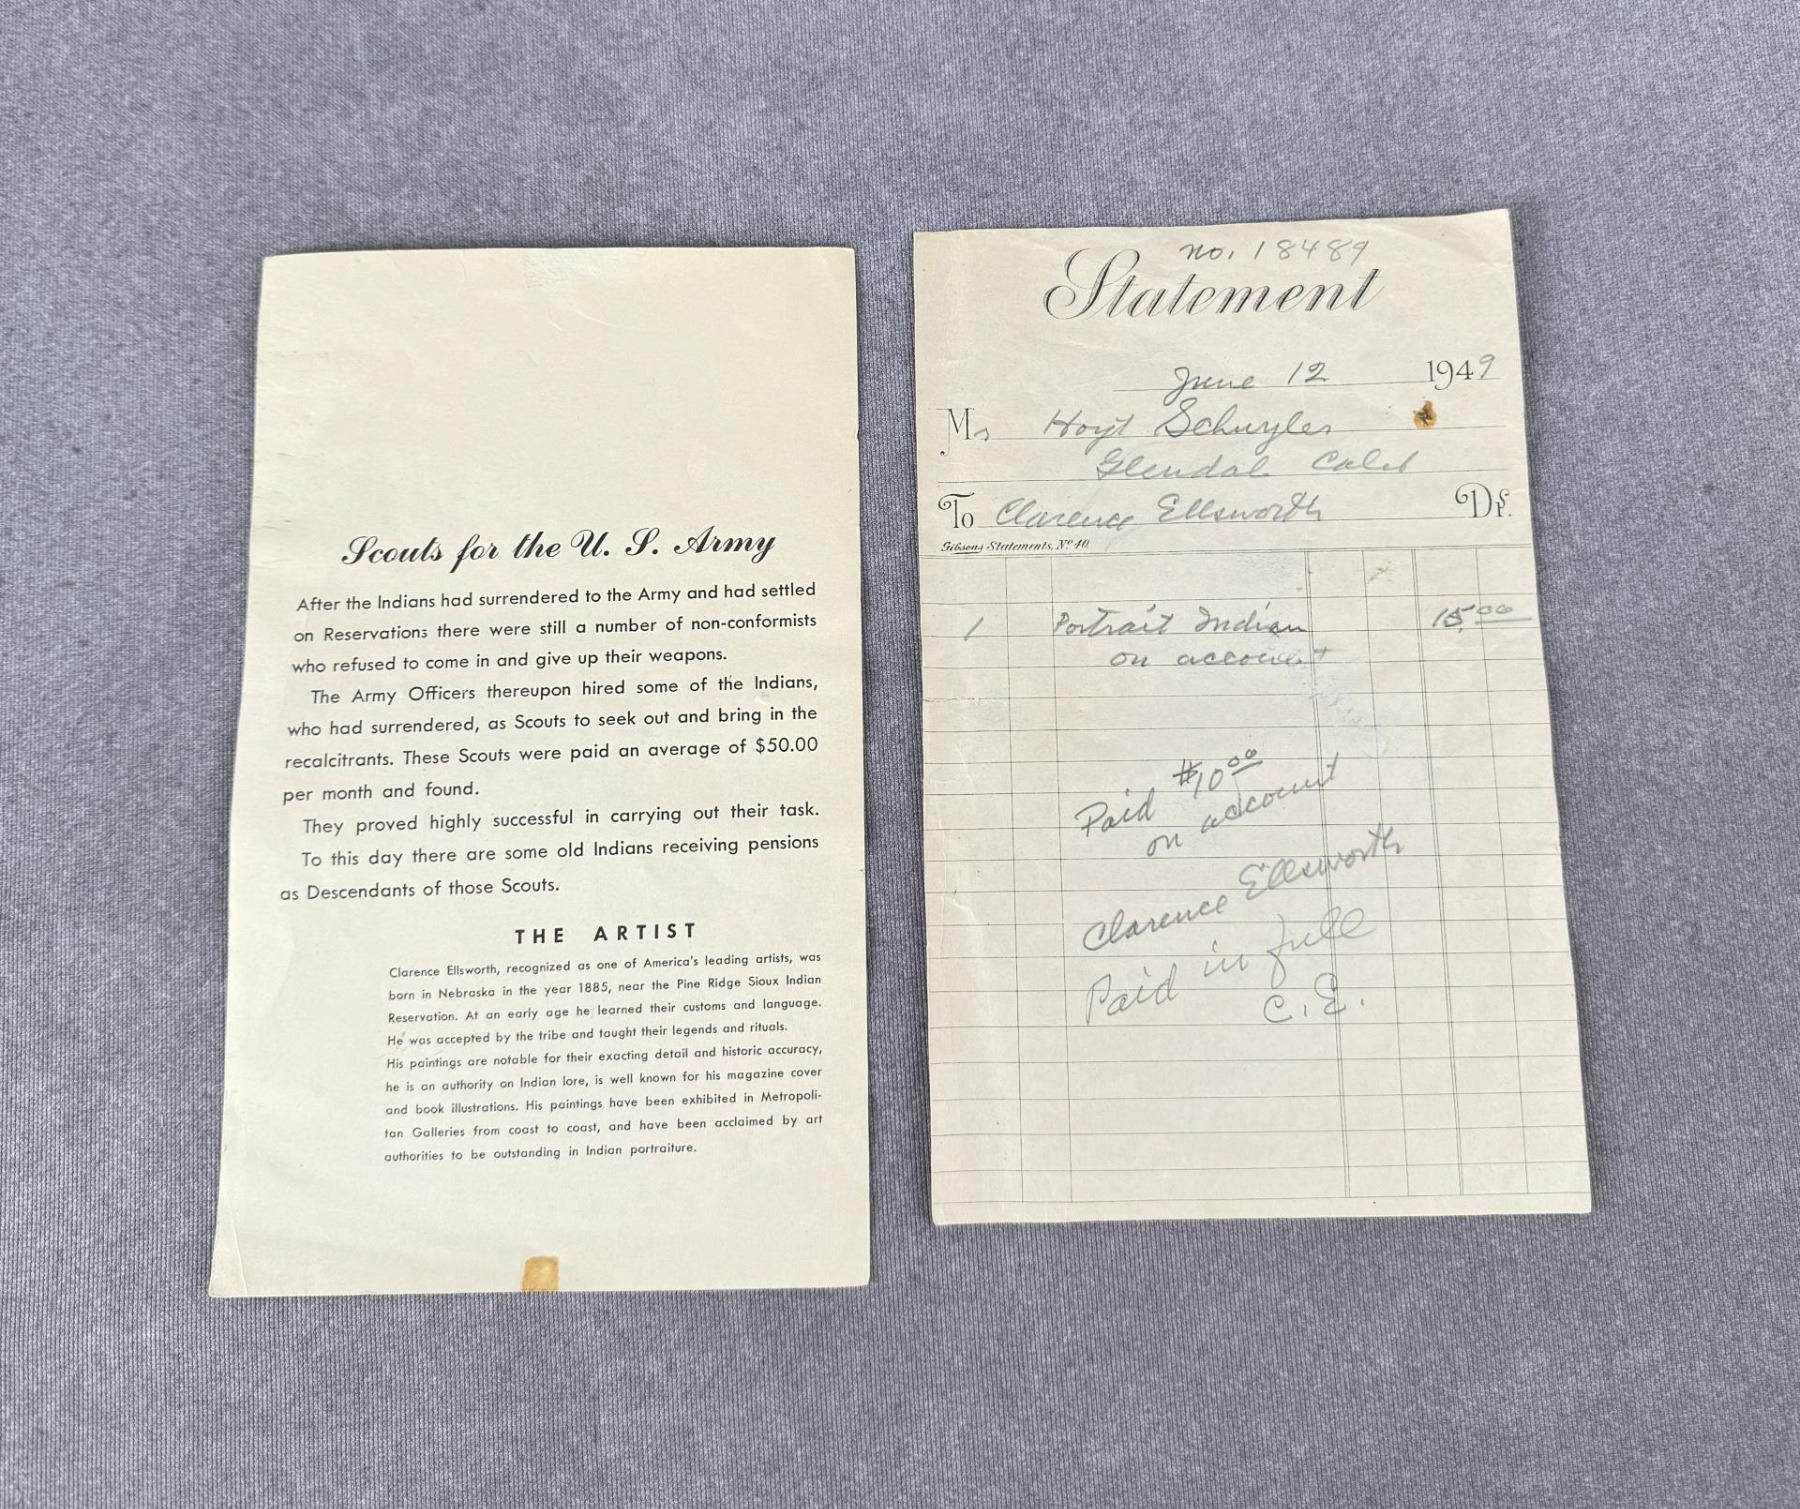 Scouts for the U. S. Army
After the Indians had surrendered to the Army and had settled
on Reservations there were still a number of non-conformists
who refused to come in and give up their weapons.
The Army Officers thereupon hired some of the Indians,
who had surrendered, as Scouts to seek out and bring in the
recalcitrants. These Scouts were paid an average of $50.00
per month and found.
They proved highly successful in carrying out their task.
To this day there are some old Indians receiving pensions
as Descendants of those Scouts.
THE ARTIST
Clarence Ellsworth, recognized as one of America's leading artists, was
born in Nebraska in the year 1885, near the Pine Ridge Sioux Indian
Reservation. At an early age he learned their customs and language.
He was accepted by the tribe and taught their legends and rituals.
His paintings are notable for their exacting detail and historic accuracy,
he is an authority on Indian lore, is well known for his magazine cover
and book illustrations. His paintings have been exhibited in Metropoli-
tan Galleries from coast to coast, and have been acclaimed by art
authorities to be outstanding in Indian portraiture.
no. 18489
Statement
June 12 1949
M Hoyt Schuyler
Glendal Calif
To Clarence Ellsworth Dr.
Gibsons Statements, No 40
1 Portrait Indian 15.00
on account
Paid $10.00
on account
Clarence Ellsworth
Paid in full
C.E.